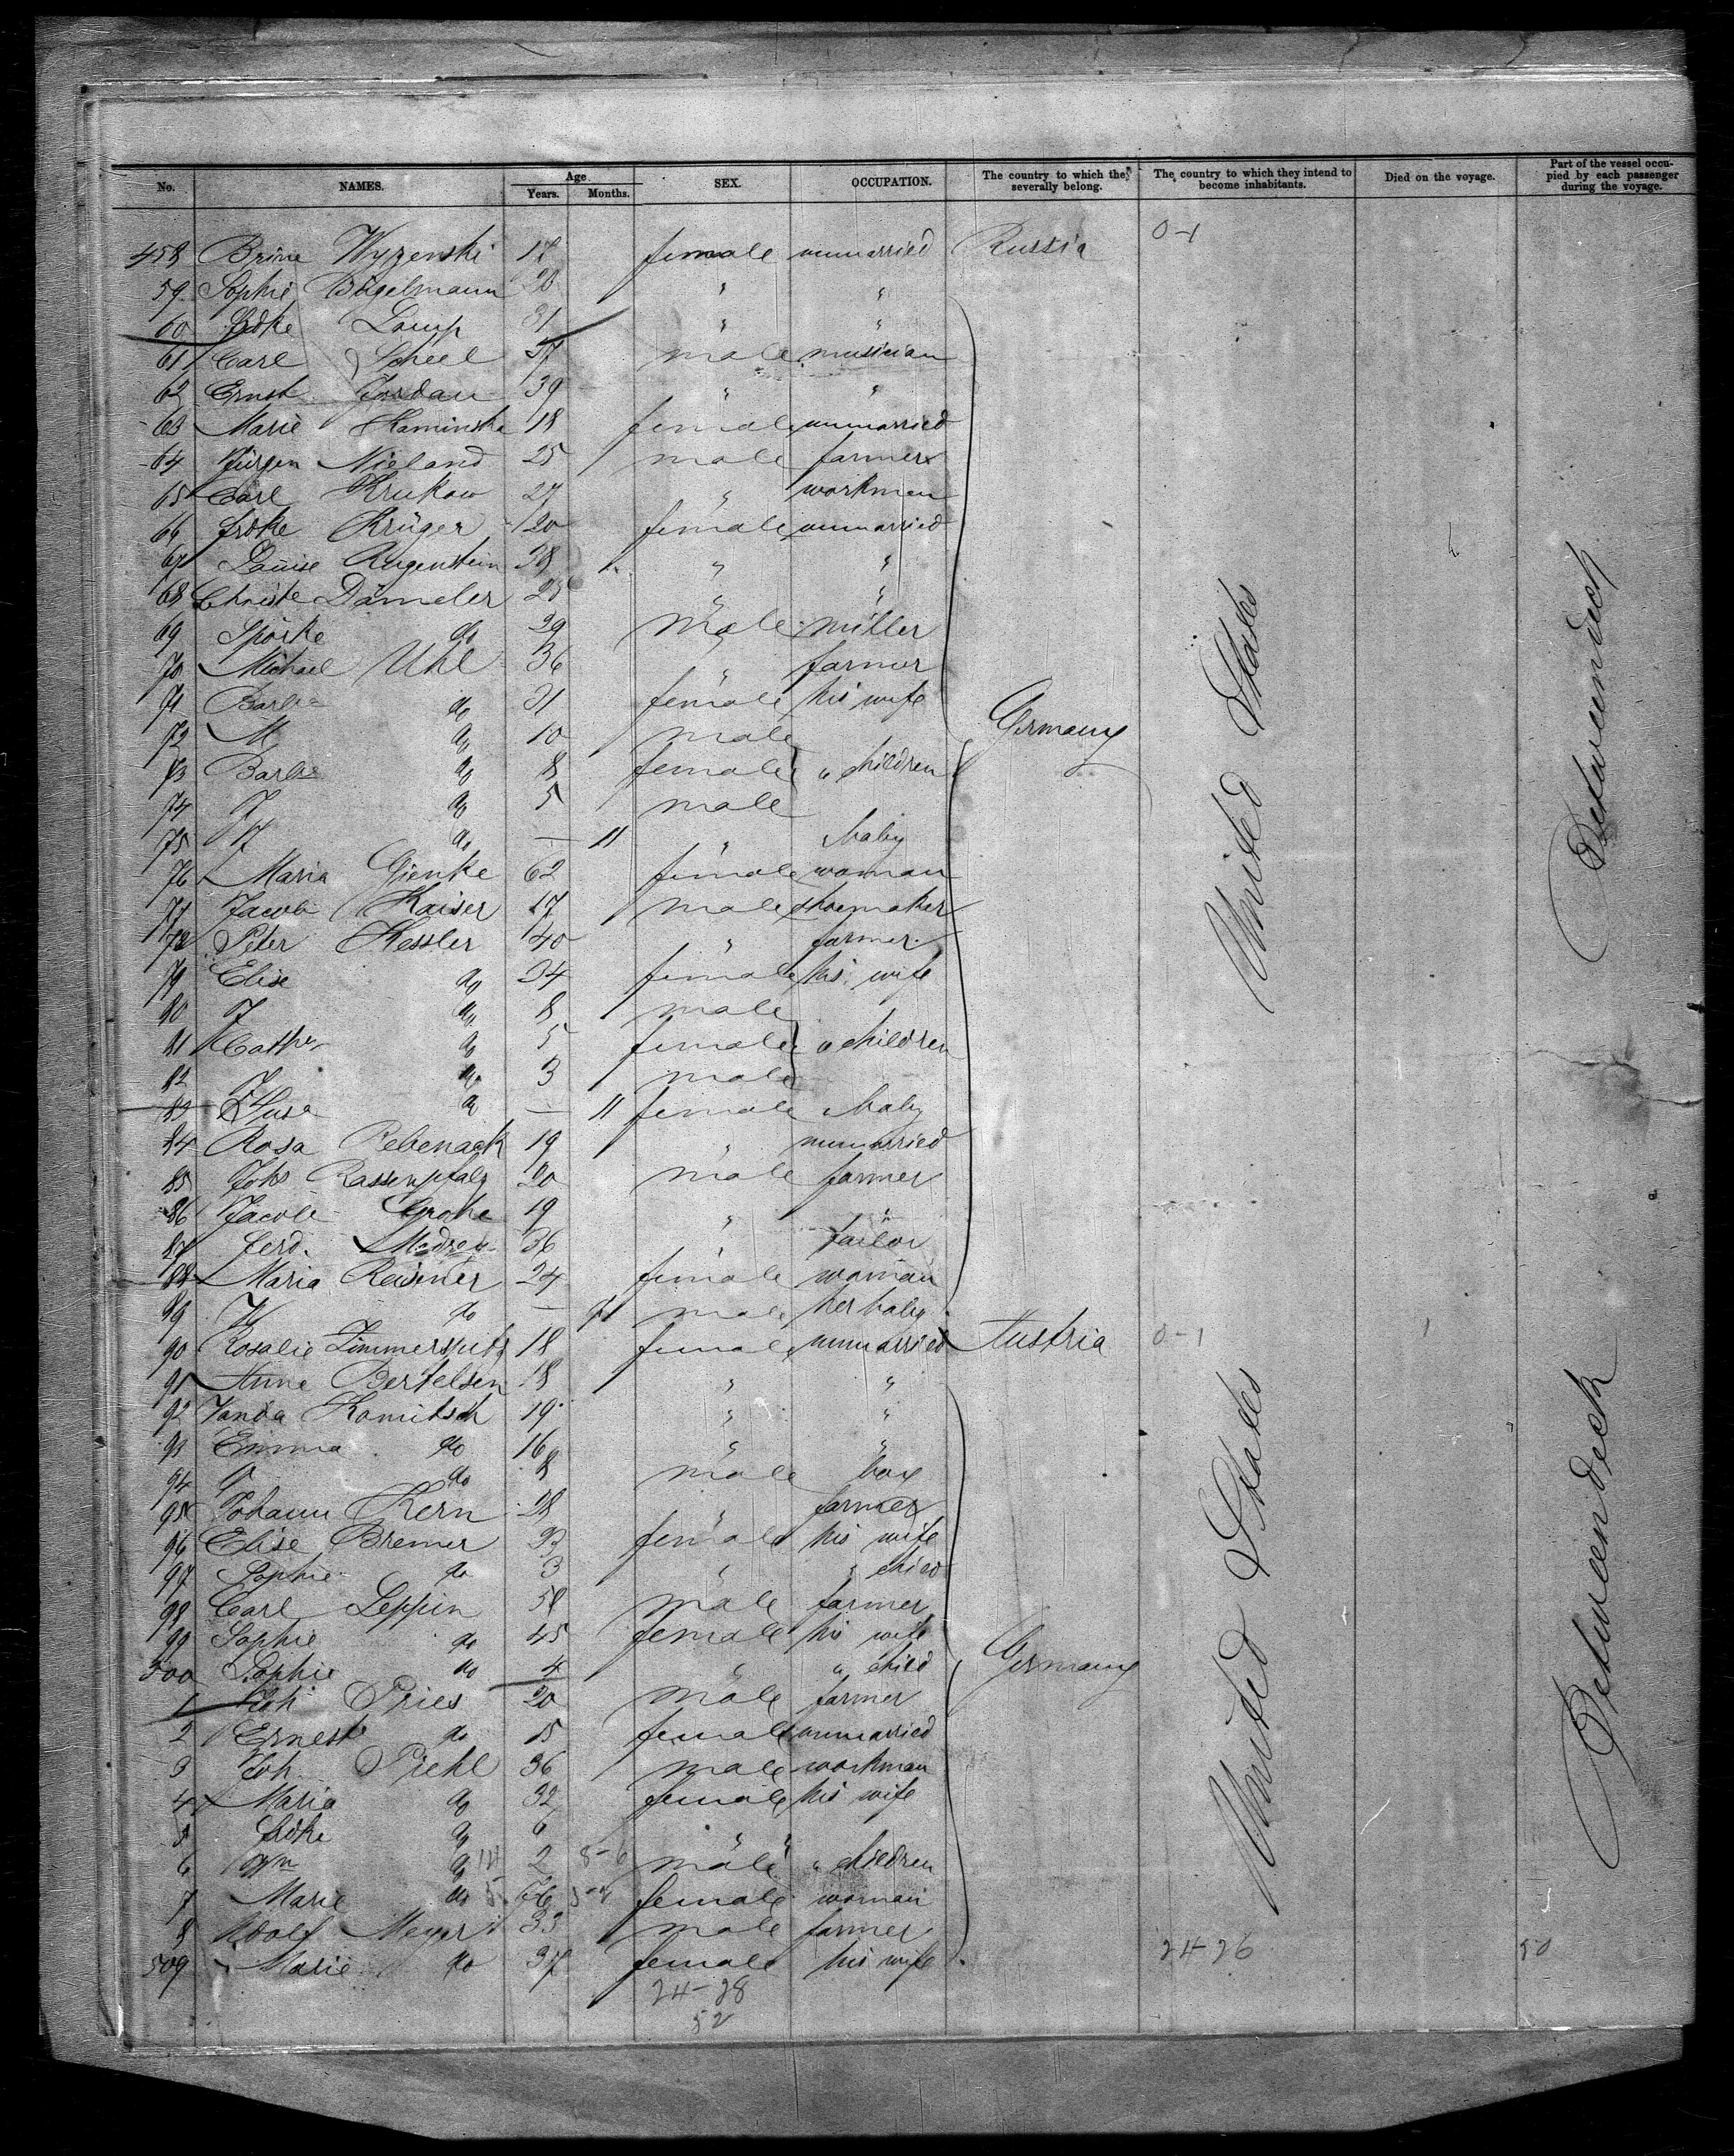 No. NAMES. Age Years. Months. SEX. OCCUPATION. The country to which they severally belong. The country to which they intend to become inhabitants. Died on the voyage. Part of the vessel occupied by each passenger during the voyage.
458 Wyzenski female unmarried Russia 0-1
59 Sophie Bögelmann 20 " "
60 Frdke Lamp " "
61 Carl Scheel 37 male musician
62 Ernst Jordan 39 " "
63 Marie Kaminska 18 female unmarried
64 Jürgen Nieland 25 male farmer
65 Carl Krukow 27 " workman
66 Frdke Krüger 20 female unmarried
67 Louise Rugenstein 38 " "
68 Christe Dämeler 25 " "
69 do 29 male miller
70 Michael Uhl 36 " farmer
71 Barba do 31 female his wife
72 M do 10 male
73 Barba do 8 female " children
74 J do 5 male
75 do — 11 " baby
76 Maria Gienke 62 female woman
77 Jacob Kaiser 17 male shoemaker
78 Peter Kessler 40 " farmer
79 Elise do 34 female his wife
80 J do 8 male
81 Cath do 5 female " children
82 J do 3 male
83 do — 11 female baby
84 Rosa Rebenack 19 " unmarried
85 Johs Rassenpfalz 20 male farmer
86 Jacob Grohe 19 " "
87 Ferd. 36 tailor
88 Maria Reisener 24 female woman
89 do — 11 male her baby
90 Rosalie Zimmerspitz 18 female unmarried Austria 0-1 1
91 Anne Bertelsen 18 " "
92 Vanda Komitsch 19 " "
93 Emma do 16 " "
94 do 8 male boy
95 Johann Kern 28 " farmer
96 Elise Bremer 33 female his wife
97 Sophie do 3 " " child
98 Carl Leppin 58 male farmer
99 Sophie do 45 female his wife
500 Sophie do 4 " " child
1 Joh Pries 20 male farmer
2 Ernest do 15 female unmarried
3 Joh. Piehl 36 male workman
4 Maria do 32 female his wife
5 Frdke do 6 " "
6 Wm do 2 male " children
7 Marie do 66 female woman
8 Adolf Meyer 33 male farmer
509 Marie do 37 female his wife
Germany
Germany
United States
United States
Betweendeck
Betweendeck
24-28
52
24-26
50